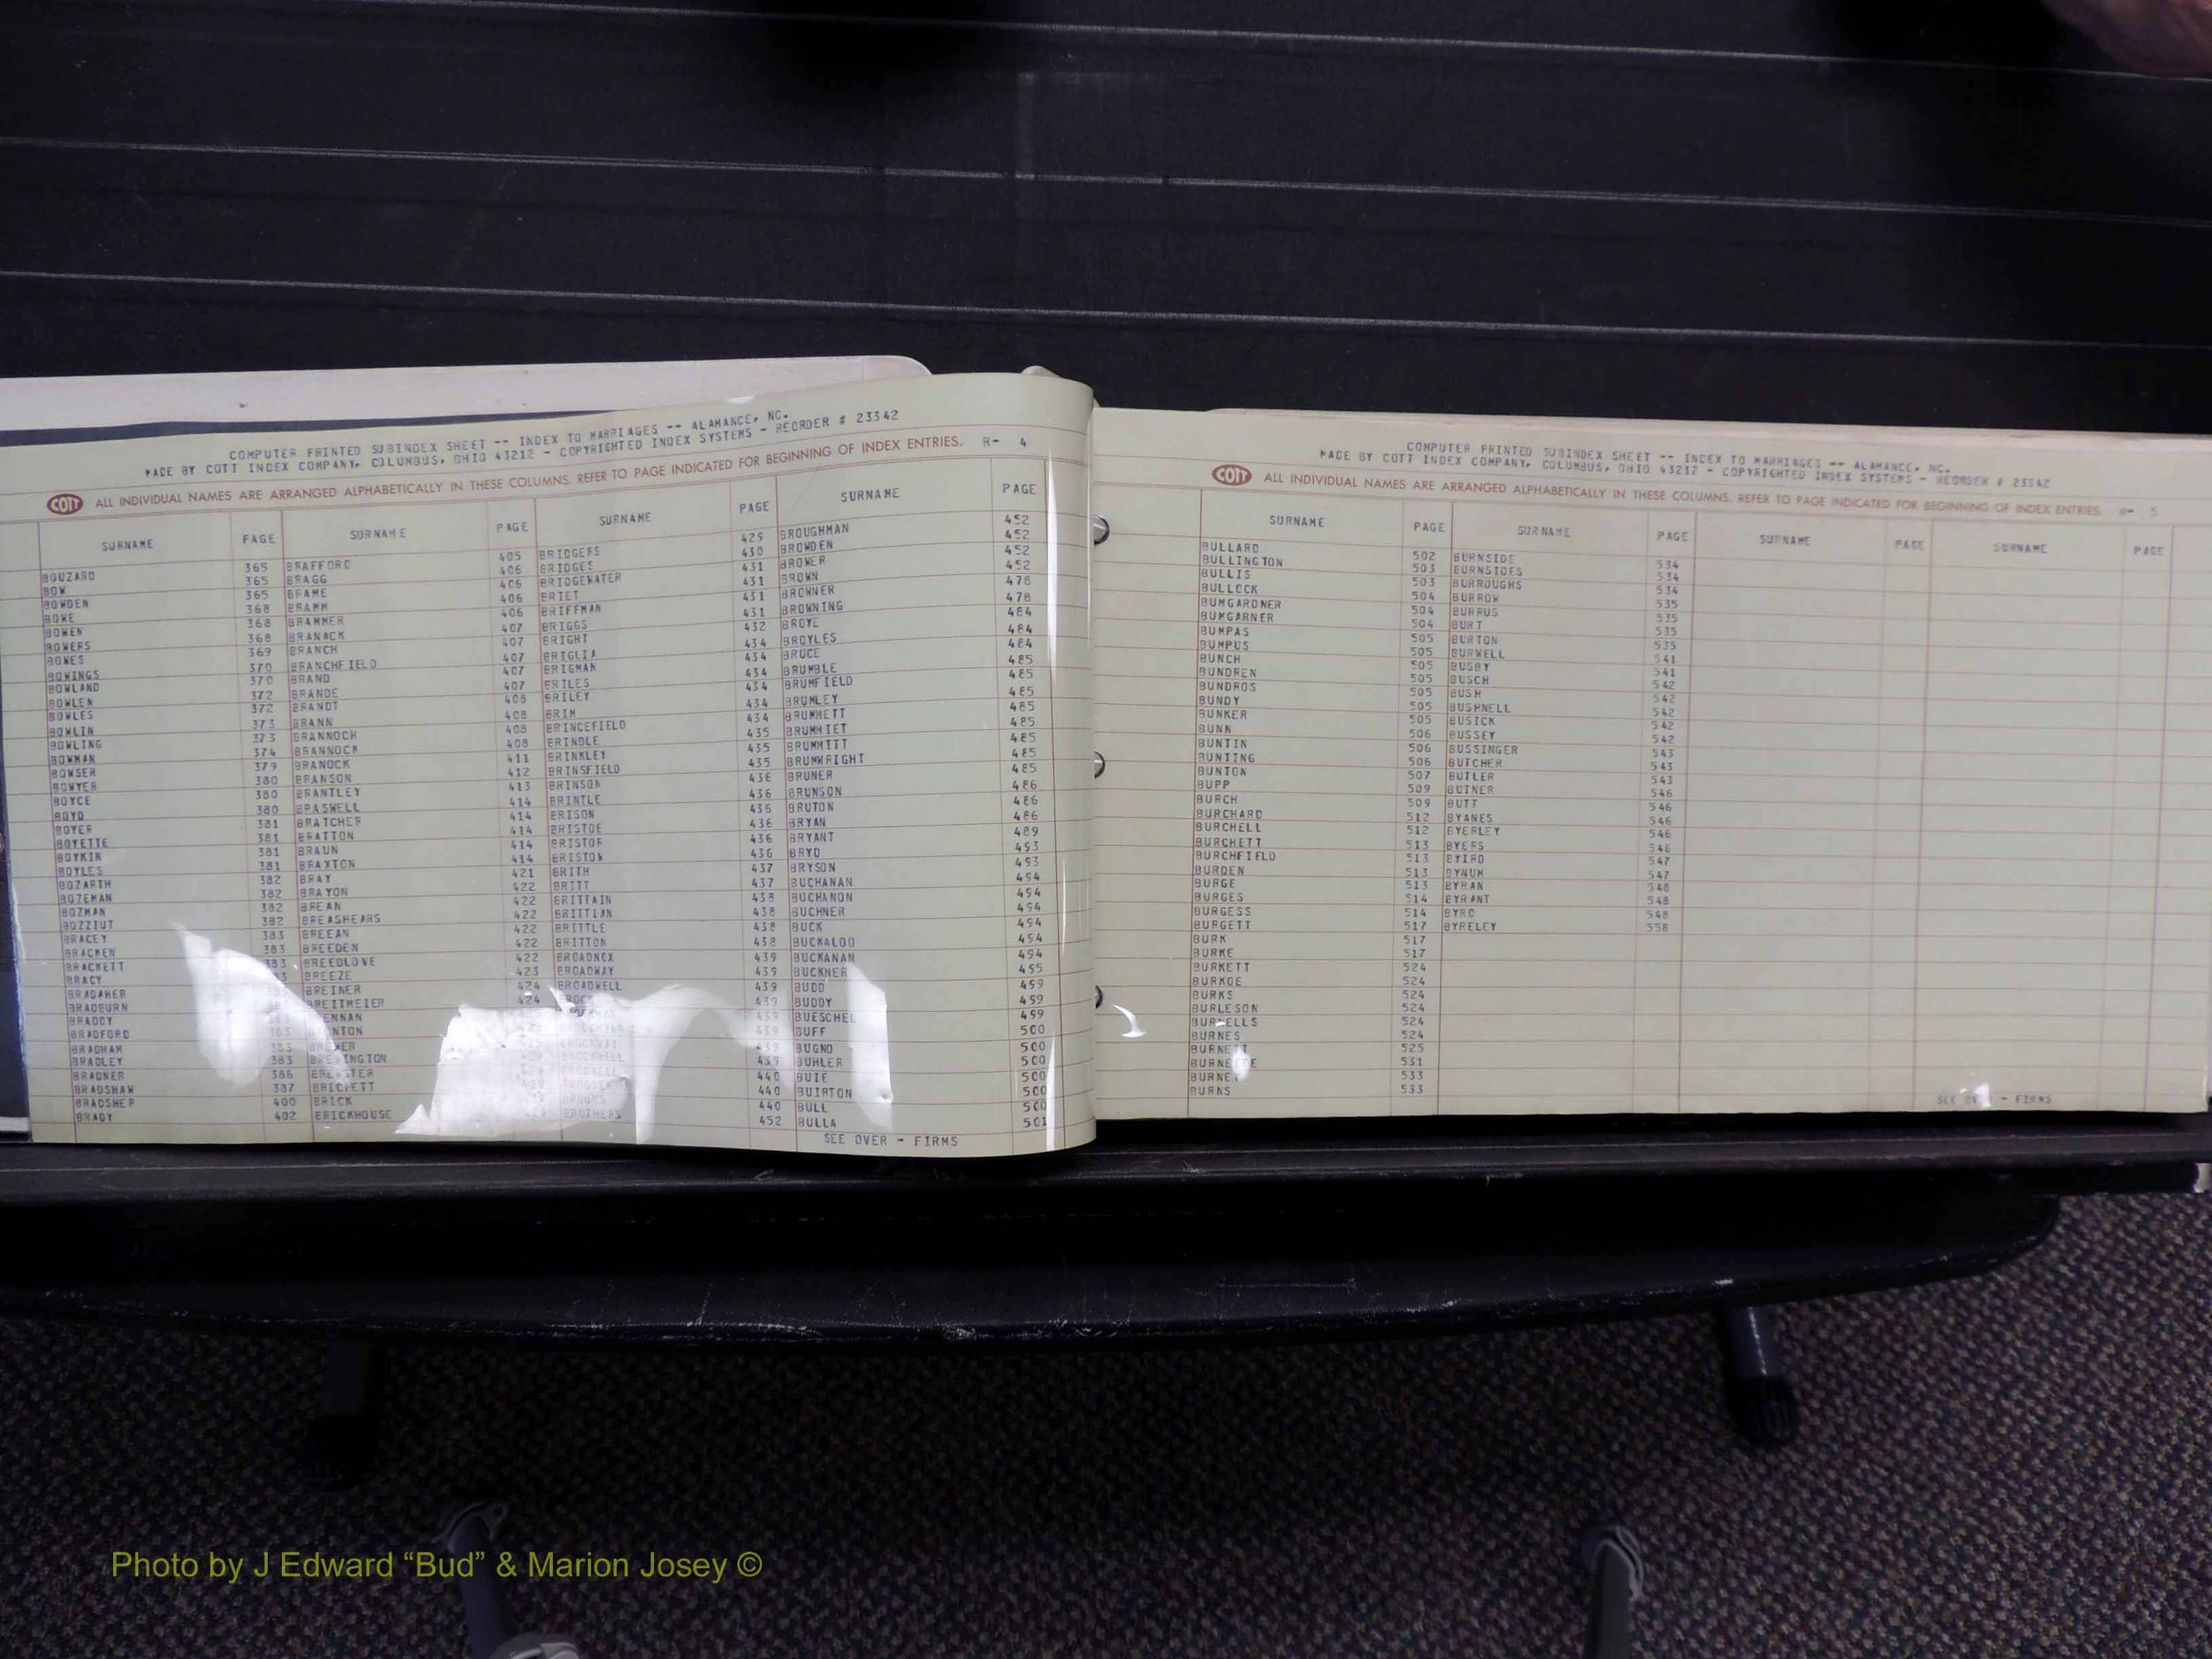 COMPUTER PRINTED SUBINDEX SHEET -- INDEX TO MARRIAGES -- ALAMANCE, NC.
MADE BY COTT INDEX COMPANY, COLUMBUS, OHIO 43212 - COPYRIGHTED INDEX SYSTEMS - REORDER # 23342
COTT ALL INDIVIDUAL NAMES ARE ARRANGED ALPHABETICALLY IN THESE COLUMNS. REFER TO PAGE INDICATED FOR BEGINNING OF INDEX ENTRIES. 4
SURNAME PAGE SURNAME PAGE SURNAME PAGE SURNAME PAGE
BOUZARD
BOW
BOWDEN
BOWE
BOWEN
BOWERS
BOWES
BOWINGS
BOWLAND
BOWLEN
BOWLES
BOWLIN
BOWLING
BOWMAN
BOWSER
BOWYER
BOYCE
BOYD
BOYER
BOYETTE
BOYKIN
BOYLES
BOZARTH
BOZEMAN
BOZMAN
BOZZIUT
BRACEY
BRACKEN
BRACKETT
BRACY
BRADAHER
BRADBURN
BRADDY
BRADFORD
BRADHAM
BRADLEY
BRADNER
BRADSHAW
BRADSHER
BRADY
365 BRAFFORD
365 BRAGG
365 BRAME
368 BRAMM
368 BRAMMER
368 BRANACK
369 BRANCH
370 BRANCHFIELD
370 BRAND
372 BRANDE
372 BRANDT
373 BRANN
373 BRANNOCH
374 BRANNOCK
379 BRANOCK
380 BRANSON
380 BRANTLEY
380 BRASWELL
381 BRATCHER
381 BRATTON
381 BRAUN
381 BRAXTON
382 BRAY
382 BRAYON
382 BREAN
382 BREASHEARS
383 BREEAN
383 BREEDEN
383 BREEDLOVE
BREEZE
BREINER
BREITMEIER
383
383
383 BREVINGTON
386 BREWSTER
387 BRICKETT
400 BRICK
402 BRICKHOUSE
405 BRIDGERS
406 BRIDGES
406 BRIDGEWATER
406 BRIET
406 BRIFFMAN
407 BRIGGS
407 BRIGHT
407 BRIGLIA
407 BRIGMAN
407 BRILES
408 BRILEY
408 BRIM
408 BRINCEFIELD
408 BRINDLE
411 BRINKLEY
412 BRINSFIELD
413 BRINSON
414 BRINTLE
414 BRISON
414 BRISTOE
414 BRISTOR
414 BRISTOW
421 BRITH
422 BRITT
422 BRITTAIN
422 BRITTIAN
422 BRITTLE
422 BRITTON
422 BROADNEX
423 BROADWAY
424 BROADWELL
424
BROTHERS
429 BROUGHMAN 452
430 BROWDEN 452
431 BROWER 452
431 BROWN 452
431 BROWNER 478
431 BROWNING 478
432 BROYE 484
434 BROYLES 484
434 BRUCE 484
434 BRUMBLE 485
434 BRUMFIELD 485
434 BRUMLEY 485
434 BRUMMETT 485
435 BRUMMIET 485
435 BRUMMITT 485
435 BRUMWRIGHT 485
436 BRUNER 485
436 BRUNSON 486
436 BRUTON 486
436 BRYAN 486
436 BRYANT 489
436 BRYD 493
437 BRYSON 493
437 BUCHANAN 494
438 BUCHANON 494
438 BUCHNER 494
438 BUCK 494
438 BUCKALOO 494
439 BUCKANAN 494
439 BUCKNER 495
439 BUDD 499
439 BUDDY 499
439 BUESCHEL 499
439 BUFF 500
439 BUGNO 500
439 BUHLER 500
440 BUIE 500
440 BUIRTON 500
440 BULL 500
452 BULLA 501
SEE OVER - FIRMS
COMPUTER PRINTED SUBINDEX SHEET -- INDEX TO MARRIAGES -- ALAMANCE, NC.
MADE BY COTT INDEX COMPANY, COLUMBUS, OHIO 43212 - COPYRIGHTED INDEX SYSTEMS - REORDER # 23342
COTT ALL INDIVIDUAL NAMES ARE ARRANGED ALPHABETICALLY IN THESE COLUMNS. REFER TO PAGE INDICATED FOR BEGINNING OF INDEX ENTRIES. 5
SURNAME PAGE SURNAME PAGE SURNAME PAGE SURNAME PAGE
BULLARD 502
BULLINGTON 503
BULLIS 503
BULLOCK 504
BUMGARDNER 504
BUMGARNER 504
BUMPAS 505
BUMPUS 505
BUNCH 505
BUNDREN 505
BUNDROS 505
BUNDY 505
BUNKER 505
BUNN 506
BUNTIN 506
BUNTING 506
BUNTON 507
BUPP 509
BURCH 509
BURCHARD 512
BURCHELL 512
BURCHETT 513
BURCHFIELD 513
BURDEN 513
BURGE 513
BURGES 514
BURGESS 514
BURGETT 517
BURK 517
BURKE 517
BURKETT 524
BURKOE 524
BURKS 524
BURLESON 524
BURNELLS 524
BURNES 524
525
531
533
BURNS 533
BURNSIDE 534
BURNSIDES 534
BURROUGHS 534
BURROW 535
BURRUS 535
BURT 535
BURTON 535
BURWELL 541
BUSBY 541
BUSCH 542
BUSH 542
BUSHNELL 542
BUSICK 542
BUSSEY 542
BUSSINGER 543
BUTCHER 543
BUTLER 543
BUTNER 546
BUTT 546
BYANES 546
BYERLEY 546
BYERS 546
BYIRD 547
BYNUM 547
BYRAN 548
BYRANT 548
BYRD 548
BYRELEY 558
SEE - FIRMS
Photo by J Edward “Bud” & Marion Josey ©